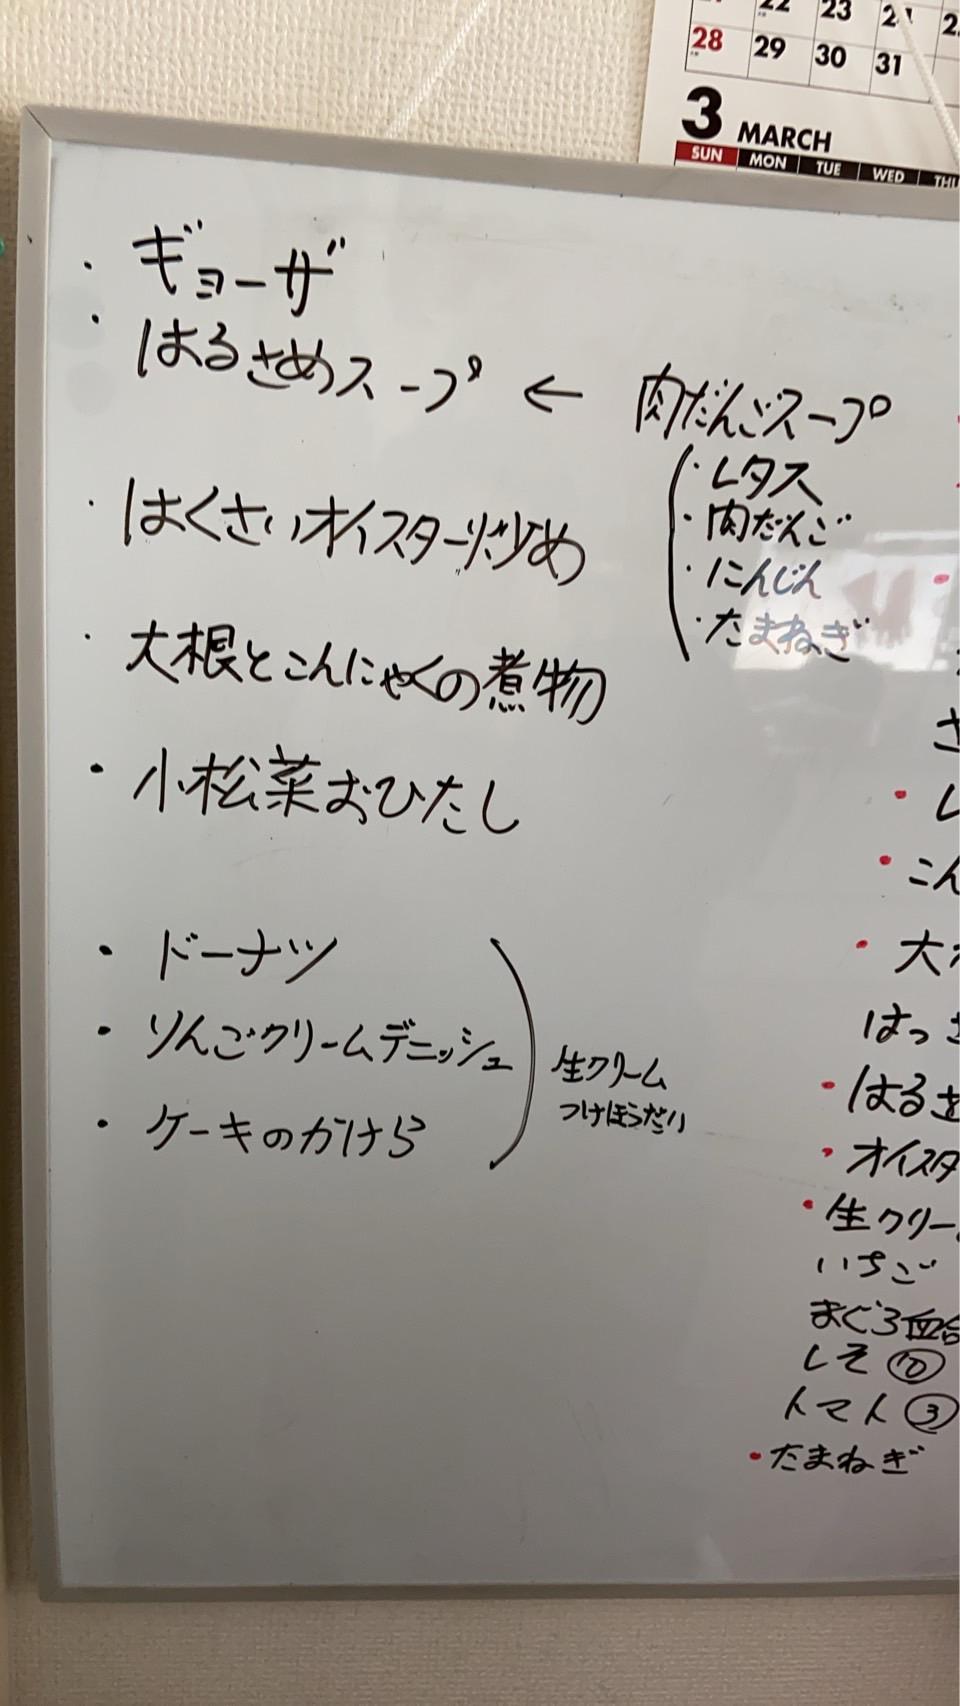 22 23 24
28 29 30 31
3 MARCH
SUN MON TUE WED THU
・ギョーザ
・はるさめスープ ← 肉だんごスープ
・レタス
・肉だんご
・にんじん
・たまねぎ
・はくさいオイスター炒め
・大根とこんにゃくの煮物
・小松菜おひたし
・ドーナツ
・りんごクリームデニッシュ
・ケーキのかけら
生クリーム
つけほうだい
さ
・し
・こん
・大
はっさ
・はるさ
・オイスタ
・生クリー
いちご
まぐろ血合
しそ⑩
トマト③
・たまねぎ